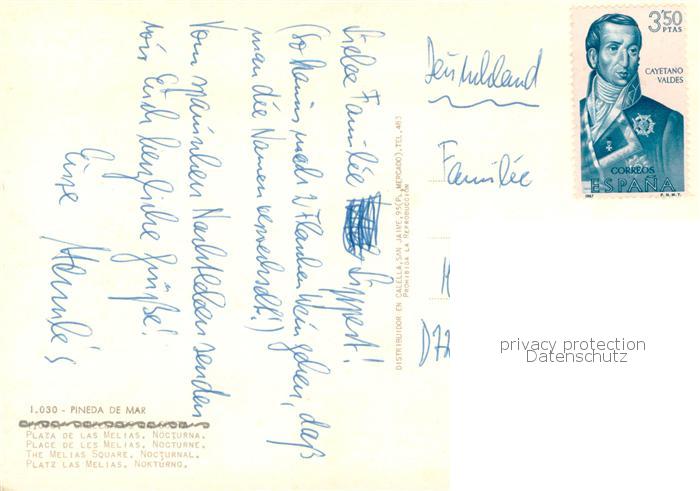 Liebe Familie Lippert!
(So kanns nach 2 Flaschen Wein gehen, daß
man die Namen verwechselt!)
Vom spanischen Nachtleben senden
wir Euch herzliche Grüße!
Eure
Deutschland
Familie
H
D 77
3'50
PTAS
CAYETANO
VALDES
CORREOS
ESPAÑA
1967 F.N.M.T.
DISTRIBUIDOR EN CALELLA, SAN JAIME, 95 (PL. MERCADO), TEL. 463
PROHIBIDA LA REPRODUCCIÓN
privacy protection
Datenschutz
1.030 - PINEDA DE MAR
PLAZA DE LAS MELIAS. NOCTURNA.
PLACE DE LES MELIAS. NOCTURNE.
THE MELIAS SQUARE. NOCTURNAL.
PLATZ LAS MELIAS. NOKTURNO.